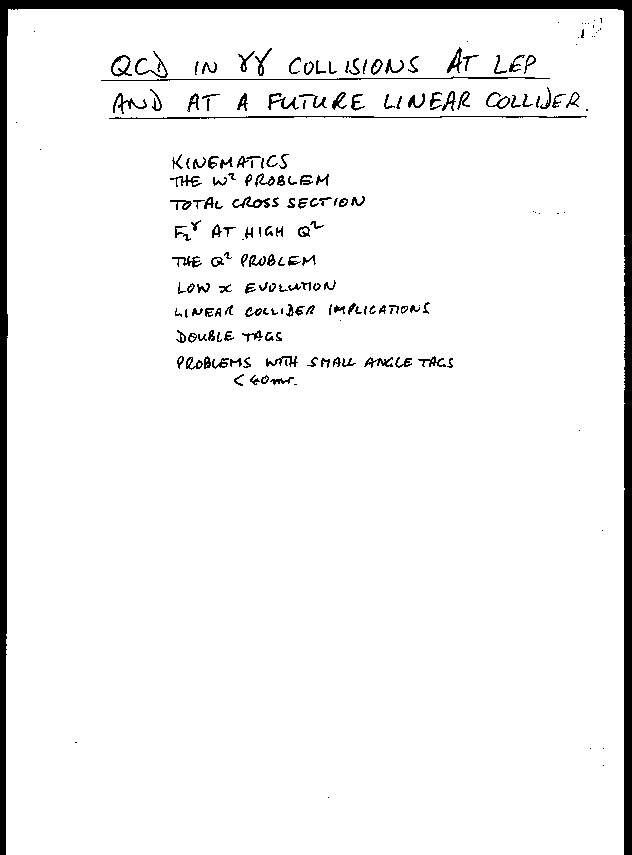 QCD IN γγ COLLISIONS AT LEP
AND AT A FUTURE LINEAR COLLIDER.
KINEMATICS
THE W² PROBLEM
TOTAL CROSS SECTION
F₂^γ AT HIGH Q²
THE Q² PROBLEM
LOW x EVOLUTION
LINEAR COLLIDER IMPLICATIONS
DOUBLE TAGS
PROBLEMS WITH SMALL ANGLE TAGS
< 40mr.